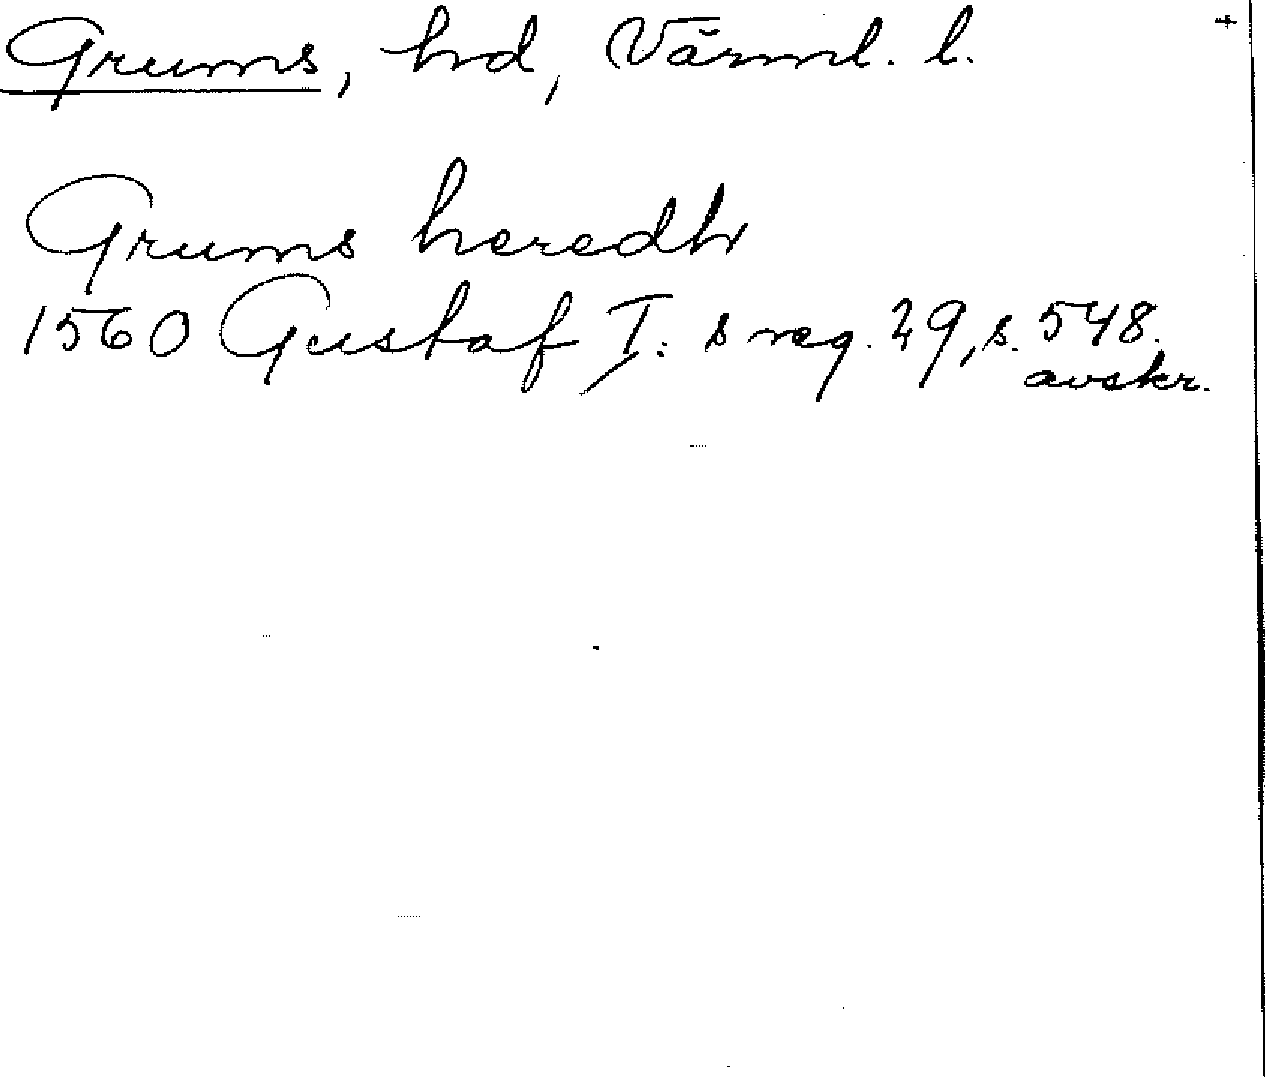 Grums, hd, Värml. l. +
Grums heredh
1560 Gustaf I: s reg. 29, s. 548.
avskr.